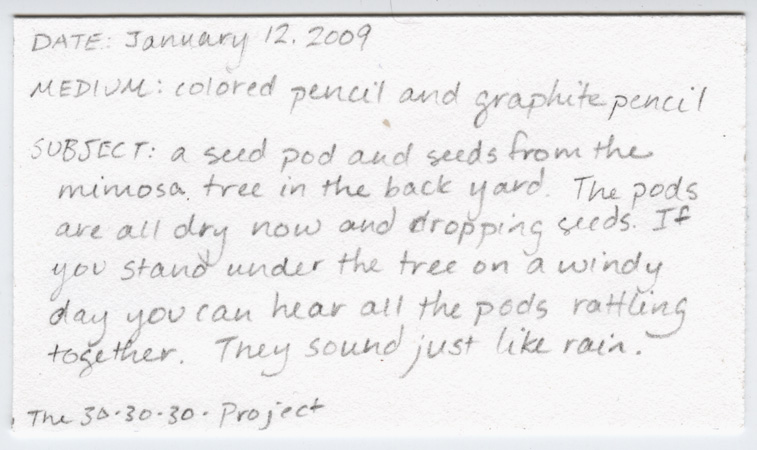 DATE: January 12. 2009
MEDIUM: colored pencil and graphite pencil
SUBJECT: a seed pod and seeds from the
mimosa tree in the back yard. The pods
are all dry now and dropping seeds. If
you stand under the tree on a windy
day you can hear all the pods rattling
together. They sound just like rain.
The 30·30·30· Project